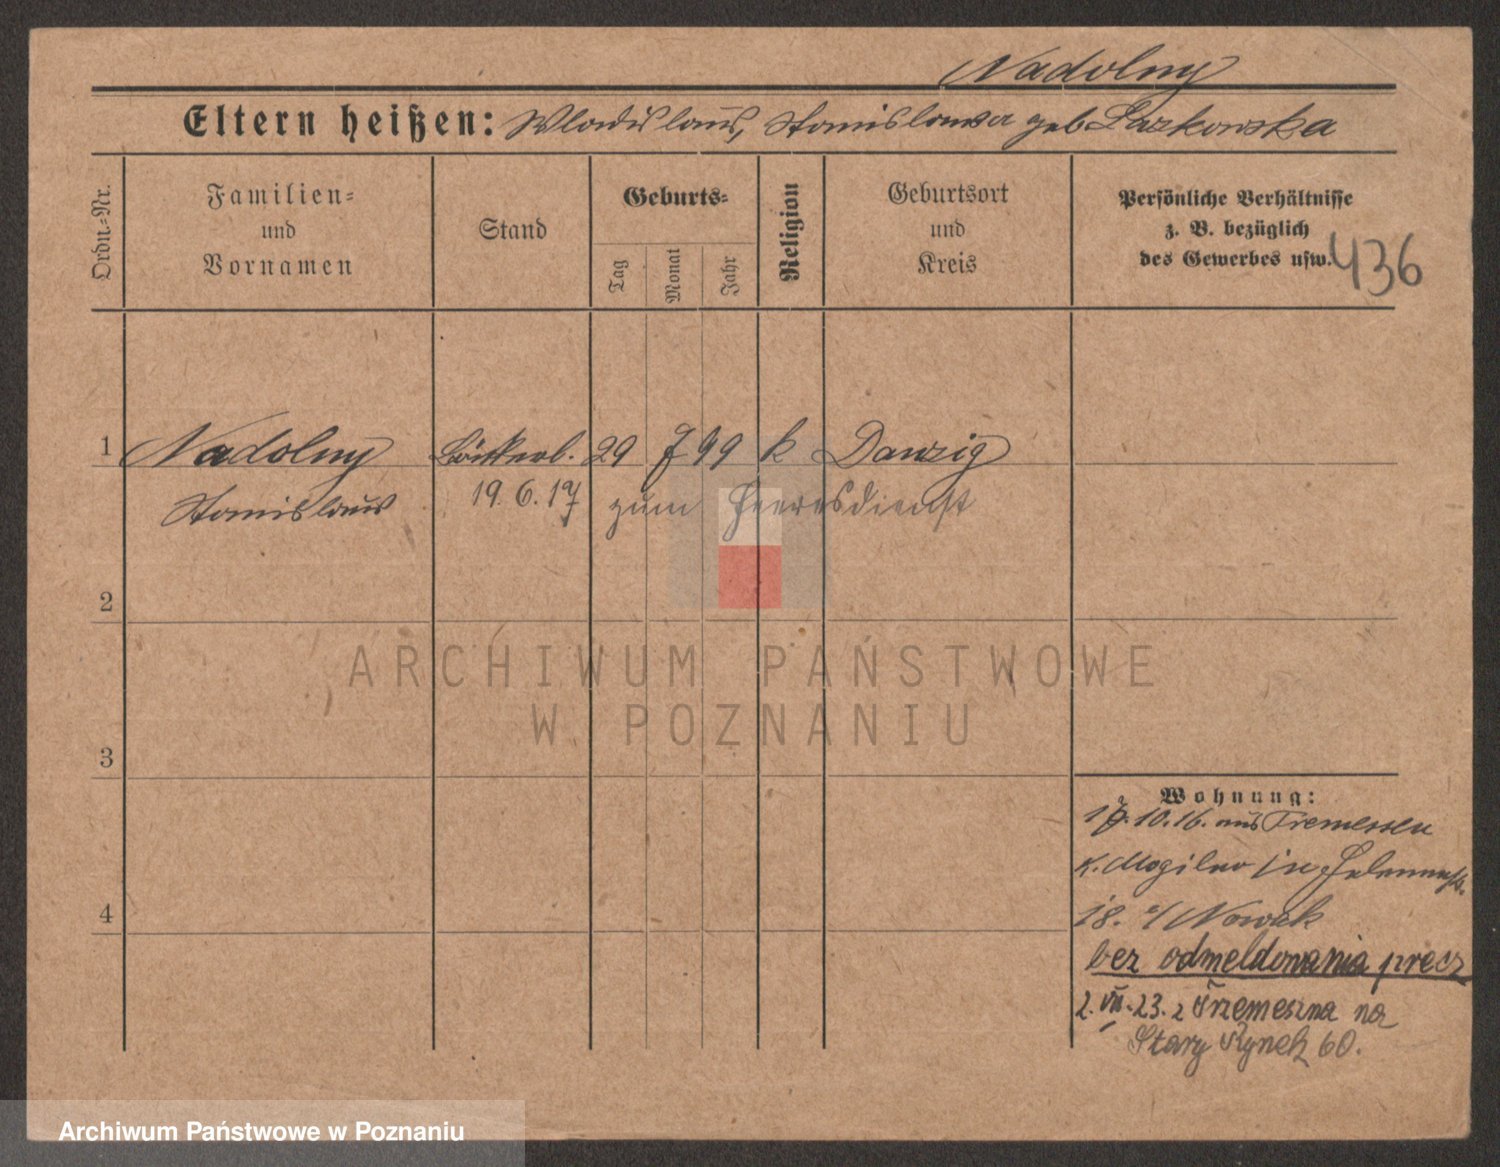 Nadolny
Eltern heißen: Wladislaus, Stanislawa geb Lazkowska
Ordn.=Nr.
Familien=
und
Vornamen
Stand
Geburts=
Tag
Monat
Jahr
Religion
Geburtsort
und
Kreis
Persönliche Verhältnisse
z. B. bezüglich
des Gewerbes usw.
436
1 Nadolny 29 7 99 k Danzig
Stanislaus 19.6.17 zum Heeresdienst
2
ARCHIWUM PAŃSTWOWE
W POZNANIU
3
Wohnung:
17.10.16. aus Tremessen
K. Mogilno in
18. b/ Nowak
4
bez odmeldowania precz
2. VII. 23. z Trzemeszna na
Stary Rynek 60.
Archiwum Państwowe w Poznaniu